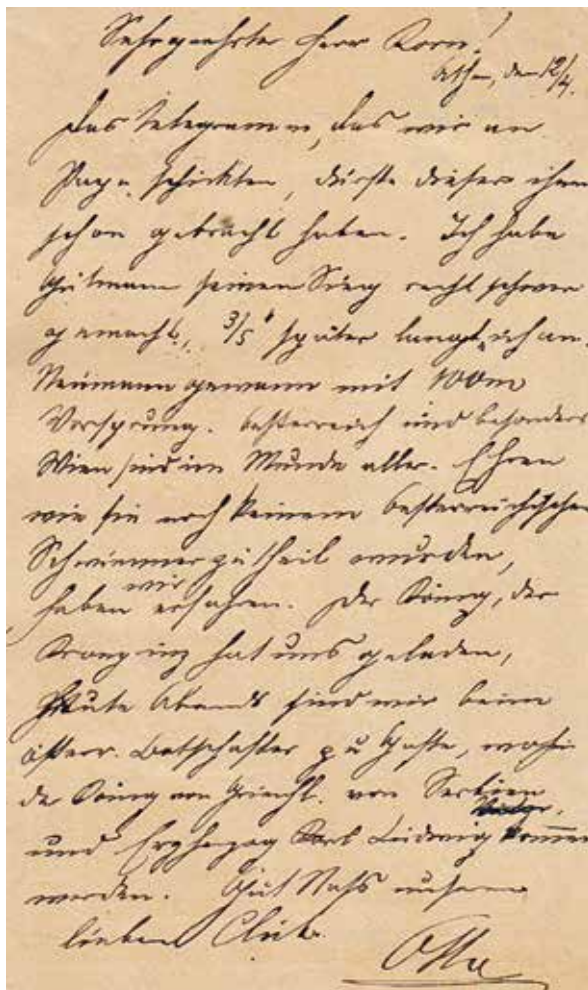 Sehr geehrter Herr Korn!
Athen, den 12/4.
Das Telegramm, das wir an
Papa schickten, dürfte dieser ihnen
schon gebracht haben. Ich habe
Gutmann seinen Sieg recht schwer
gemacht, 3/5" später langte ich an.
Neumann gewann mit 100m
Vorsprung. Oesterreich und besonders
Wien sind im Munde aller. Ehren
wie sie noch keinem oesterreichischen
Schwimmer zutheil wurden,
haben wir erfahren. Der König, der
Kronprinz hat uns geladen,
Heute Abends sind wir beim
österr. Botschafter zu Gaste, wohin
der König von Griechl. von Serbien
und Erzherzog Karl Ludwig kommen
werden. Gut Nass unserm
lieben Club.
Otto